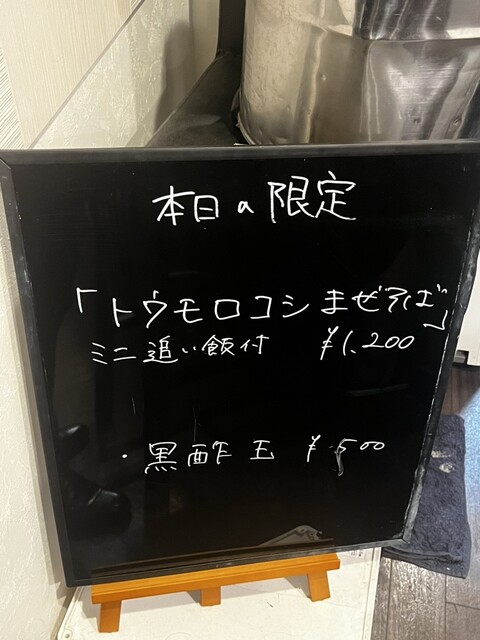 本日の限定
「トウモロコシまぜそば」
ミニ追い飯付 ¥1,200
・黒酢玉 ¥500